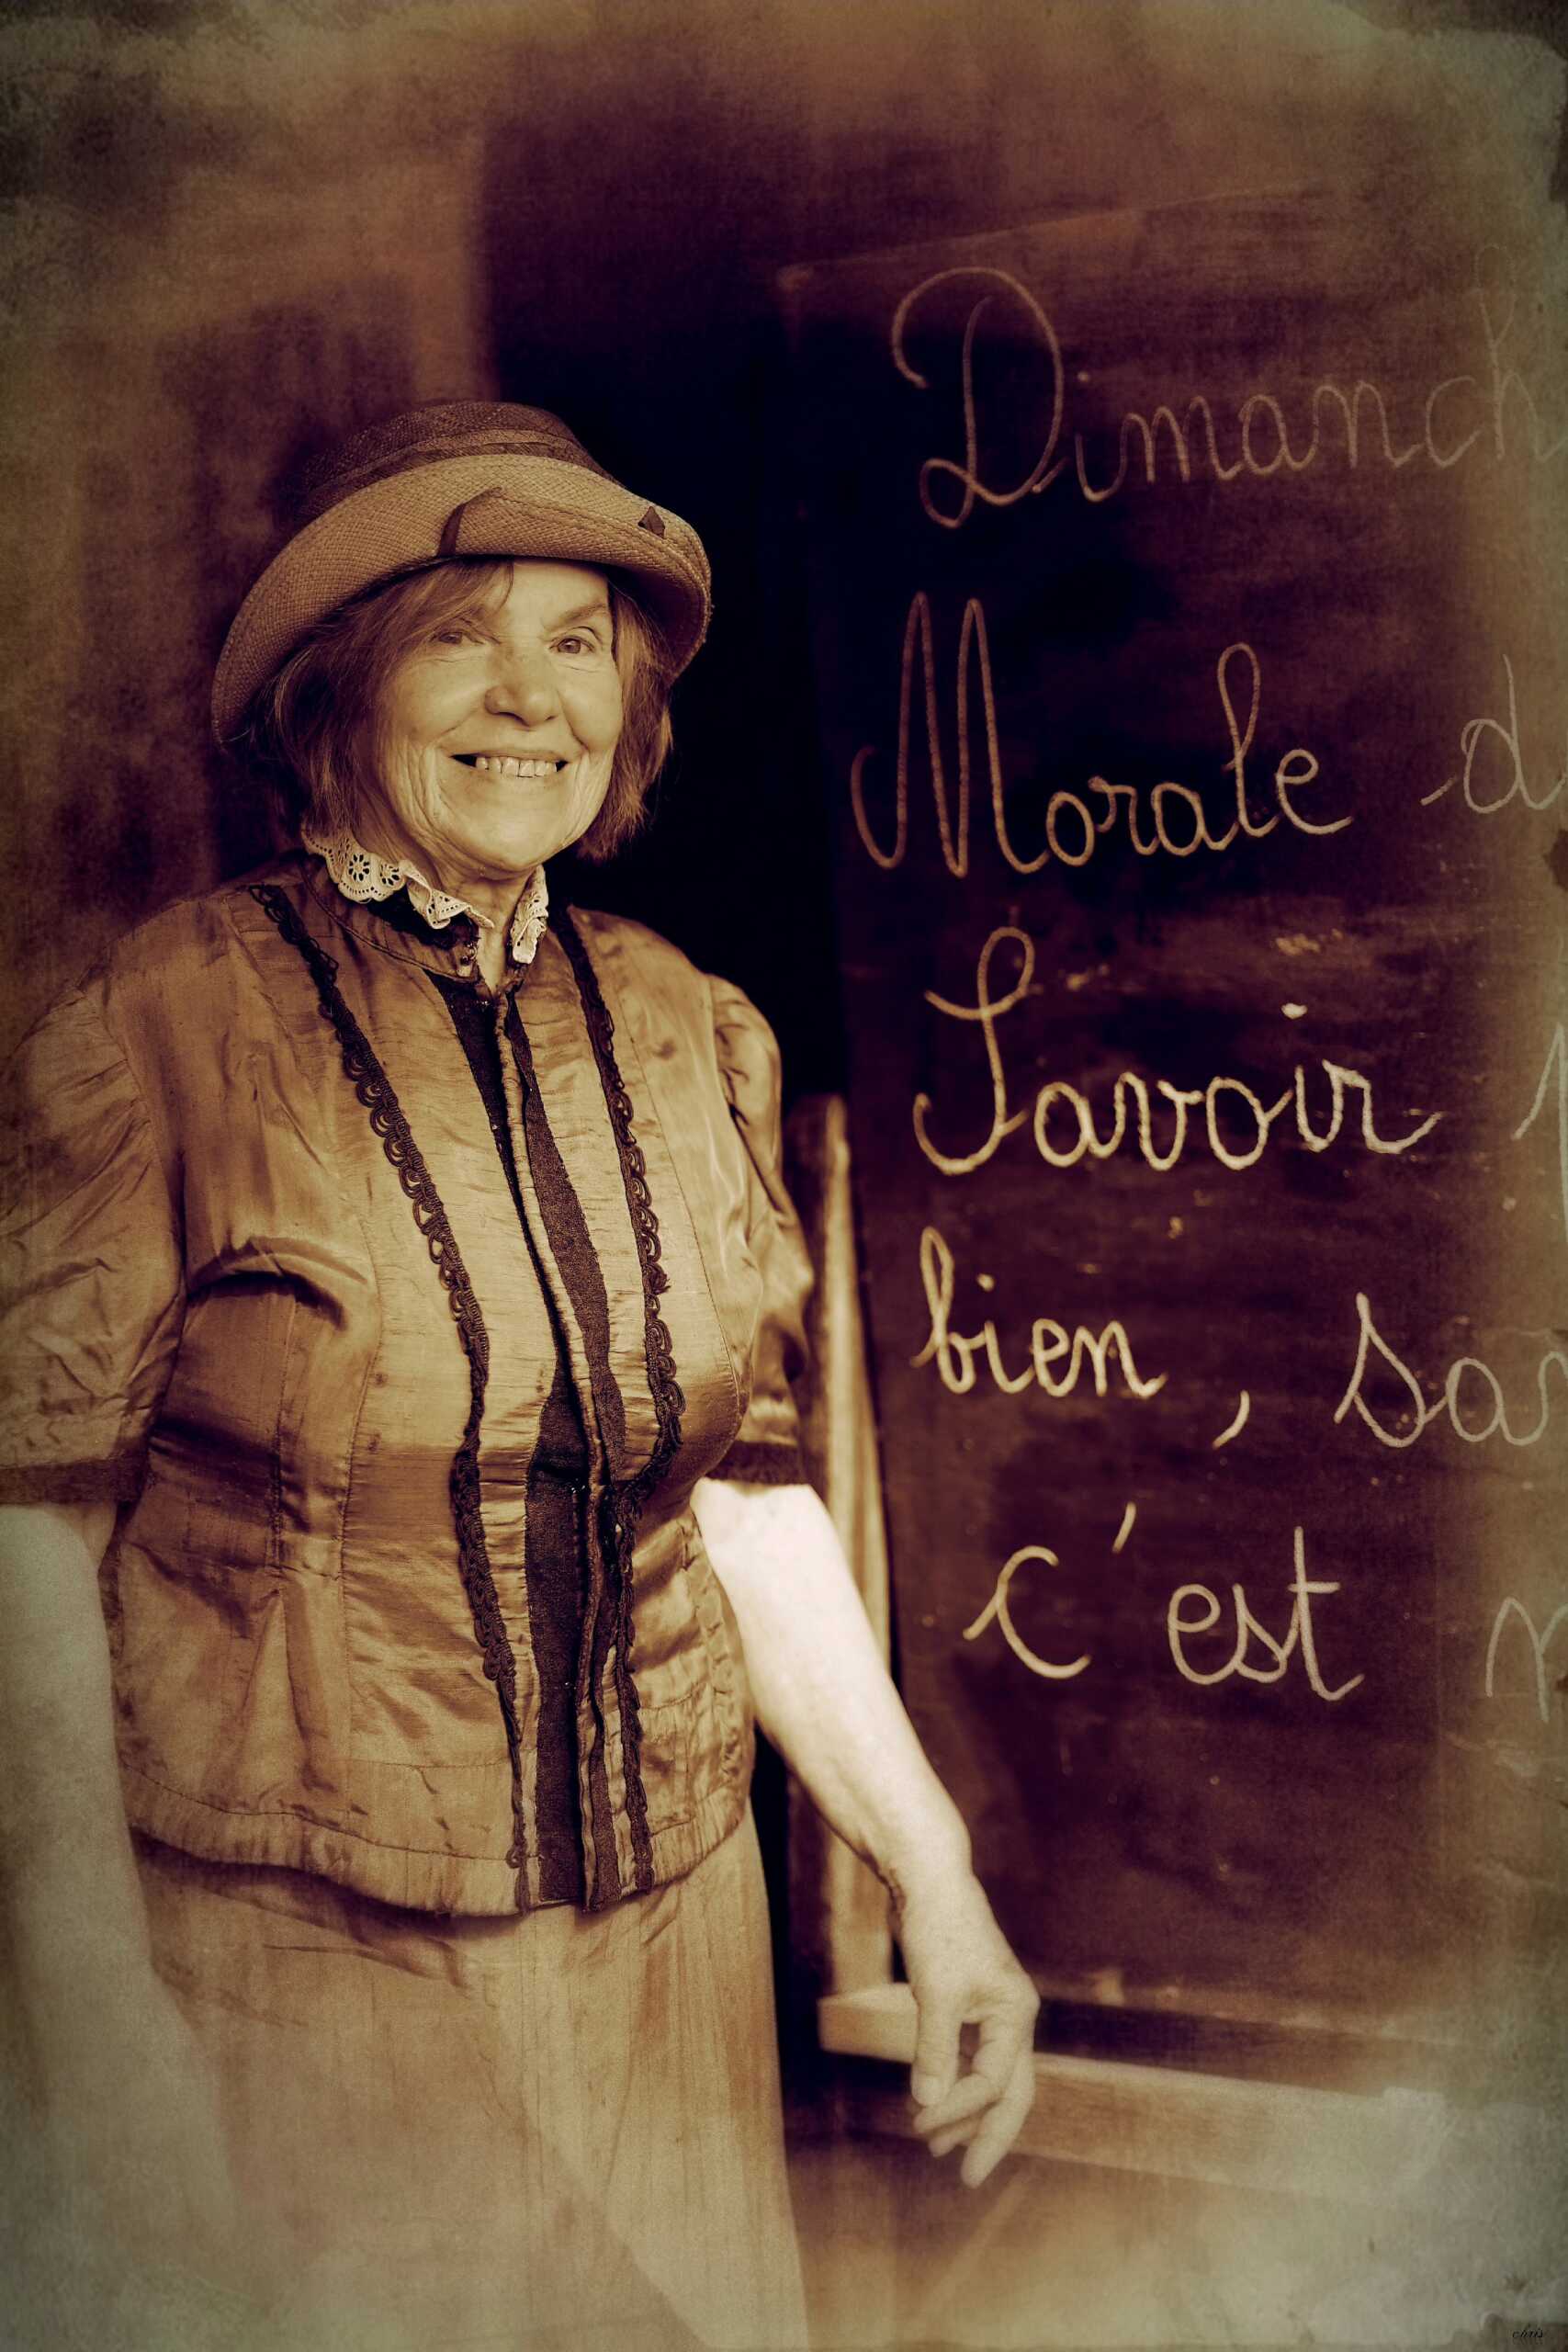 Dimanch
Morale d
Savoir
bien, sa
c'est
chris